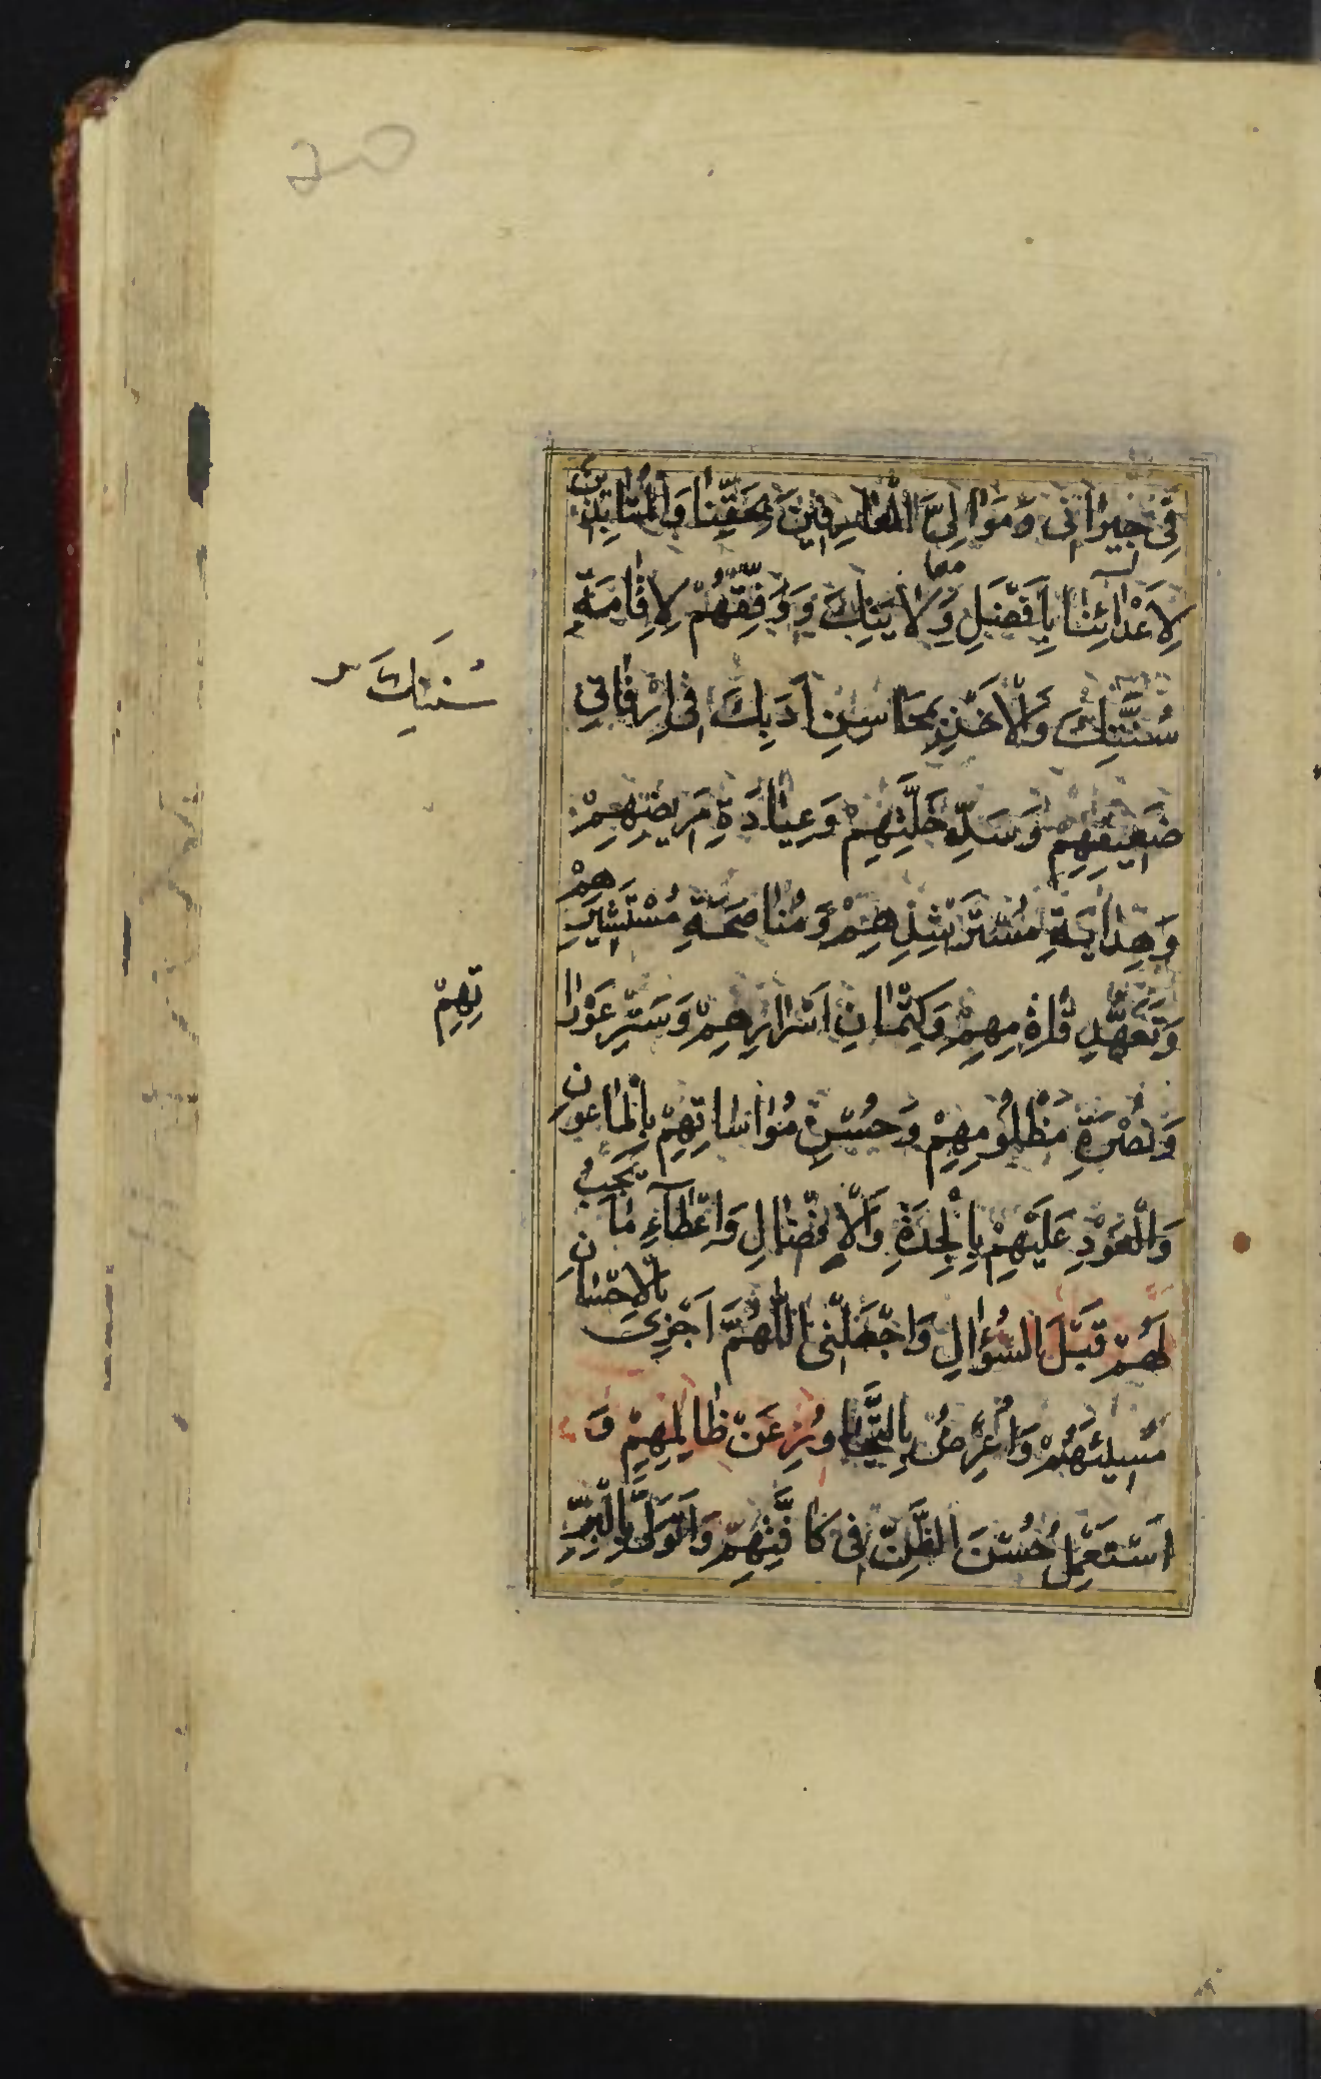 20
فِي جِيرَانِي وَمَوَالِيَّ الْعَارِفِينَ بِحَقِّنَا وَالْمُنَابِذِينَ
لِأَعْدَائِنَا بِأَفْضَلِ وَلَايَتِكَ وَوَفِّقْهُمْ لِإِقَامَةِ
معا
سُنَّتِكَ وَالْأَخْذِ بِمَحَاسِنِ أَدَبِكَ فِي إِرْفَاقِ
سُنَنِكَ
ضَعِيفِهِمْ وَسَدِّ خَلَّتِهِمْ وَعِيَادَةِ مَرِيضِهِمْ
وَهِدَايَةِ مُسْتَرْشِدِهِمْ وَمُنَاصَحَةِ مُسْتَشِيرِهِمْ
وَتَعَهُّدِ قَادِمِهِمْ وَكِتْمَانِ أَسْرَارِهِمْ وَسَتْرِ عَوْرَا
تِهِمْ
وَنُصْرَةِ مَظْلُومِهِمْ وَحُسْنِ مُوَاسَاتِهِمْ بِالْمَاعُونِ
وَالْعَوْدِ عَلَيْهِمْ بِالْجِدَةِ وَالْإِفْضَالِ وَإِعْطَاءِ مَا يَجِبُ
لَهُمْ قَبْلَ السُّؤَالِ وَاجْعَلْنِي اللَّهُمَّ أَجْزِي بِالْإِحْسَانِ
مُسِيئَهُمْ وَأُعْرِضُ بِالتَّجَاوُزِ عَنْ ظَالِمِهِمْ وَ
أَسْتَعْمِلُ حُسْنَ الظَّنِّ فِي كَافَّتِهِمْ وَأَتَوَلَّى بِالْبِرِّ